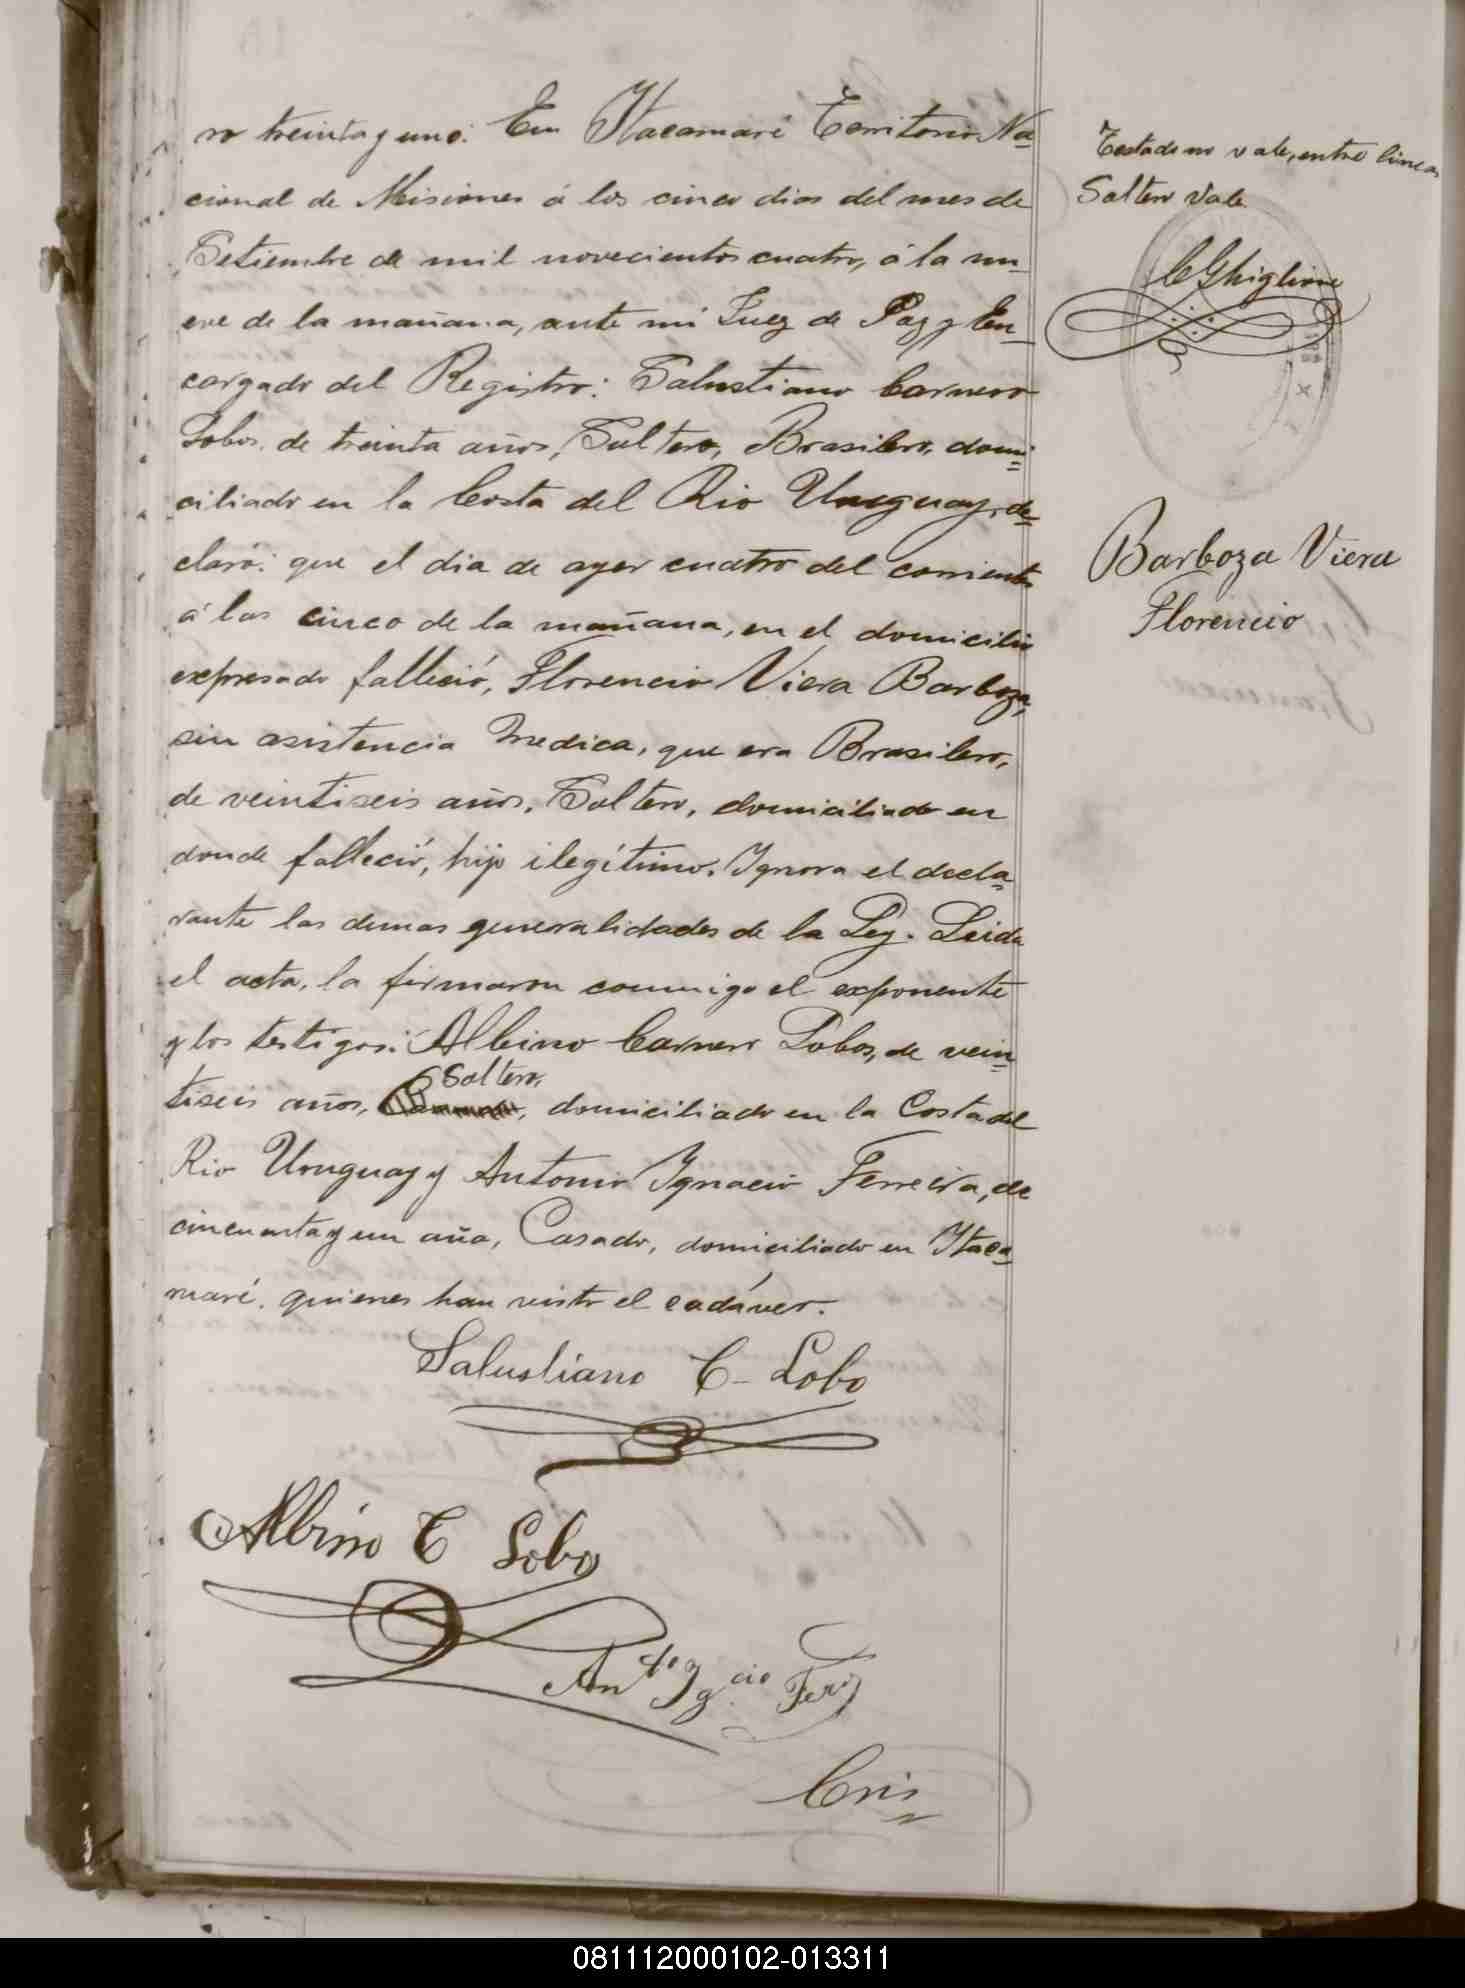 ro treinta y uno: En Itacamaré Territorio Na=
cional de Misiones á los cinco dias del mes de
Setiembre de mil novecientos cuatro, á la nu=
eve de la mañana, ante mi Juez de Paz y En=
cargado del Registro: Salustiano Carnero
Lobos, de treinta años, Soltero, Brasilero, domi=
ciliado en la Costa del Rio Uruguay, de=
claró: que el dia de ayer cuatro del corriente
á las cinco de la mañana, en el domicilio
expresado falleció, Florencio Viera Barboza,
sin asistencia Medica, que era Brasilero,
de veintiseis años, Soltero, domiciliado en
donde falleció, hijo ilegítimo. Ignora el decla=
rante las demas generalidades de la Ley. Leida
el acta, la firmaron conmigo el exponente
y los testigos: Albino Carnero Lobos, de vein=
Soltero,
tiseis años, domiciliado en la Costa del
Rio Uruguay y Antonio Ignacio Ferreira, de
cincuenta y un año, Casado, domiciliado en Itaca=
maré, quienes han visto el cadáver.
Salustiano C- Lobo
Albino C Lobo
Anto Igcio Ferª
Cris
Testado no vale, entre lineas
Soltero Vale
C Ghiglione
Barboza Viera
Florencio
081112000102-013311